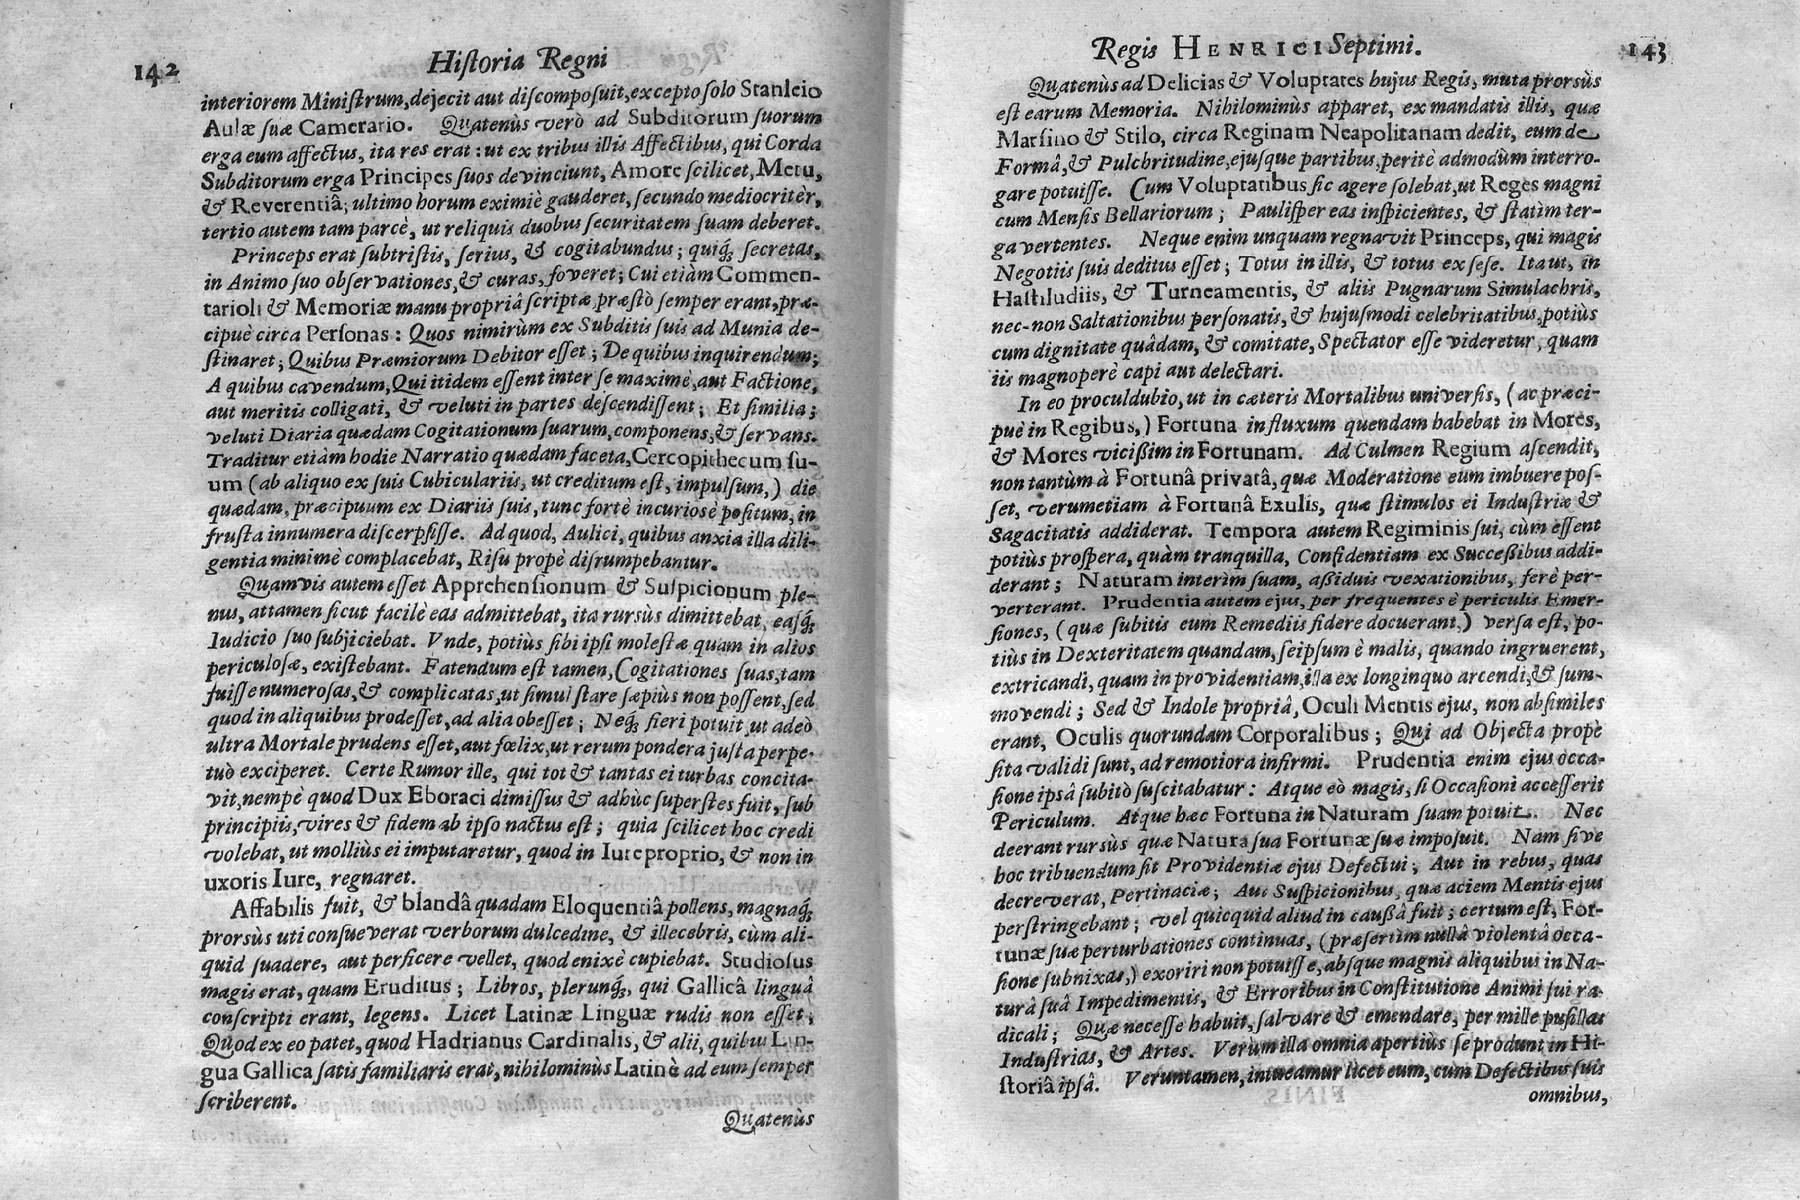 142
Historia Regni
interiorem Ministrum, dejecit aut discomposuit, excepto solo Stanleio
Aulæ suæ Camerario. Quatenùs verò ad Subditorum suorum
erga eum affectus, ita res erat: ut ex tribus illis Affectibus, qui Corda
Subditorum erga Principes suos devinciunt, Amore scilicet, Metu,
& Reverentiâ; ultimo horum eximiè gauderet, secundo mediocritèr,
tertio autem tam parcè, ut reliquis duobus securitatem suam deberet.
Princeps erat subtristis, serius, & cogitabundus; quiq; secretas,
in Animo suo observationes, & curas, foveret; Cui etiàm Commen-
tarioli & Memoriæ manu propriâ scriptæ præstò semper erant, præ-
cipuè circa Personas: Quos nimirùm ex Subditis suis ad Munia de-
stinaret; Quibus Præmiorum Debitor esset; De quibus inquirendum;
A quibus cavendum, Qui itidem essent inter se maximè, aut Factione,
aut meritis colligati, & veluti in partes descendissent; Et similia;
veluti Diaria quædam Cogitationum suarum, componens, & servans.
Traditur etiàm hodie Narratio quædam faceta, Cercopithecum su-
um (ab aliquo ex suis Cubiculariis, ut creditum est, impulsum,) die
quædam, præcipuum ex Diariis suis, tunc fortè incuriosè positum, in
frusta innumera discerpsisse. Ad quod, Aulici, quibus anxia illa dili-
gentia minimè complacebat, Risu propè disrumpebantur.
Quamvis autem esset Apprehensionum & Suspicionum ple-
nus, attamen sicut facilè eas admittebat, ita rursùs dimittebat, easq;
Iudicio suo subjiciebat. Vnde, potiùs sibi ipsi molestæ quam in alios
periculosæ, existebant. Fatendum est tamen, Cogitationes suas, tam
fuisse numerosas, & complicatas, ut simul stare sæpiùs non possent, sed
quod in aliquibus prodesset, ad alia obesset; Neq; fieri potuit, ut adeò
ultra Mortale prudens esset, aut fœlix, ut rerum pondera justa perpe-
tuò exciperet. Certe Rumor ille, qui tot & tantas ei turbas concita-
vit, nempè quod Dux Eboraci dimissus & adhùc superstes fuit, sub
principiis, vires & fidem ab ipso nactus est; quia scilicet hoc credi
volebat, ut molliùs ei imputaretur, quod in Iure proprio, & non in
uxoris Iure, regnaret.
Affabilis fuit, & blandâ quadam Eloquentiâ pollens, magnaq;
prorsùs uti consueverat verborum dulcedine, & illecebris, cùm ali-
quid suadere, aut perficere vellet, quod enixè cupiebat. Studiosus
magis erat, quam Eruditus; Libros, plerunq;, qui Gallicâ linguâ
conscripti erant, legens. Licet Latinæ Linguæ rudis non esset;
Quod ex eo patet, quod Hadrianus Cardinalis, & alii, quibus Lin-
gua Gallica satis familiaris erat, nihilominùs Latinè ad eum semper
scriberent.
Quatenùs
Regis HENRICI Septimi.
143
Quatenùs ad Delicias & Voluptates hujus Regis, muta prorsùs
est earum Memoria. Nihilominùs apparet, ex mandatis illis, quæ
Marsino & Stilo, circa Reginam Neapolitanam dedit, eum de
Formâ, & Pulchritudine, ejusque partibus, peritè admodùm interro-
gare potuisse. Cum Voluptatibus sic agere solebat, ut Reges magni
cum Mensis Bellariorum; Paulisper eas inspicientes, & statìm ter-
ga vertentes. Neque enim unquam regnavit Princeps, qui magis
Negotiis suis deditus esset; Totus in illis, & totus ex sese. Ita ut, in
Hastiludiis, & Turneamentis, & aliis Pugnarum Simulachris,
nec-non Saltationibus personatis, & hujusmodi celebritatibus, potiùs
cum dignitate quâdam, & comitate, Spectator esse videretur, quam
iis magnoperè capi aut delectari.
In eo proculdubio, ut in cæteris Mortalibus universis, (ac præci-
puè in Regibus,) Fortuna influxum quendam habebat in Mores,
& Mores vicißim in Fortunam. Ad Culmen Regium ascendit,
non tantùm à Fortunâ privatâ, quæ Moderatione eum imbuere pos-
set, verumetiam à Fortunâ Exulis, quæ stimulos ei Industriæ &
Sagacitatis addiderat. Tempora autem Regiminis sui, cùm essent
potiùs prospera, quàm tranquilla, Confidentiam ex Succeßibus addi-
derant; Naturam interìm suam, aßiduis vexationibus, ferè per-
verterant. Prudentia autem ejus, per frequentes è periculis Emer-
siones, (quæ subitis eum Remediis fidere docuerant,) versa est, po-
tiùs in Dexteritatem quandam, seipsum è malis, quando ingruerent,
extricandi, quam in providentiam, illa ex longinquo arcendi, & sum-
movendi; Sed & Indole propriâ, Oculi Mentis ejus, non absimiles
erant, Oculis quorundam Corporalibus; Qui ad Objecta propè
sita validi sunt, ad remotiora infirmi. Prudentia enim ejus occa-
sione ipsâ subitò suscitabatur: Atque eò magis, si Occasioni accesserit
Periculum. Atque hæc Fortuna in Naturam suam potuit. Nec
deerant rursùs quæ Natura sua Fortunæ suæ imposuit. Nam sive
hoc tribuendum sit Providentiæ ejus Defectui; Aut in rebus, quas
decreverat, Pertinaciæ; Aut Suspicionibus, quæ aciem Mentis ejus
perstringebant; vel quicquid aliud in caußâ fuit; certum est, For-
tunæ suæ perturbationes continuas, (præsertìm nullâ violentâ occa-
sione subnixas,) exoriri non potuisse, absque magnis aliquibus in Na-
turâ suâ Impedimentis, & Erroribus in Constitutione Animi sui ra-
dicali; Quæ necesse habuit, salvare & emendare, per mille pusillas
Industrias, & Artes. Verùm illa omnia apertiùs se produnt in Hi-
storiâ ipsâ. Veruntamen, intueamur licet eum, cum Defectibus suis
omnibus,